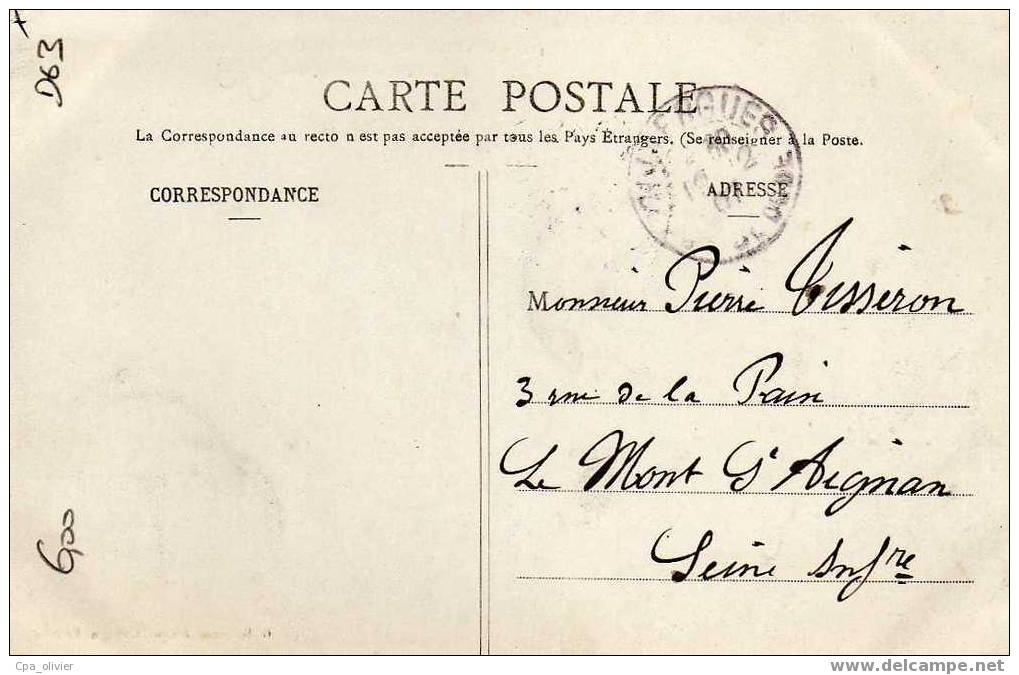 D63
CARTE POSTALE
La Correspondance au recto n est pas acceptée par tous les Pays Étrangers. (Se renseigner à la Poste.
CORRESPONDANCE
ADRESSE
Monsieur Pierre Tisseron
3 rue de la Paix
Le Mont St Aignan
Seine Infre
600
Cpa_olivier
http://www.delcampe.net